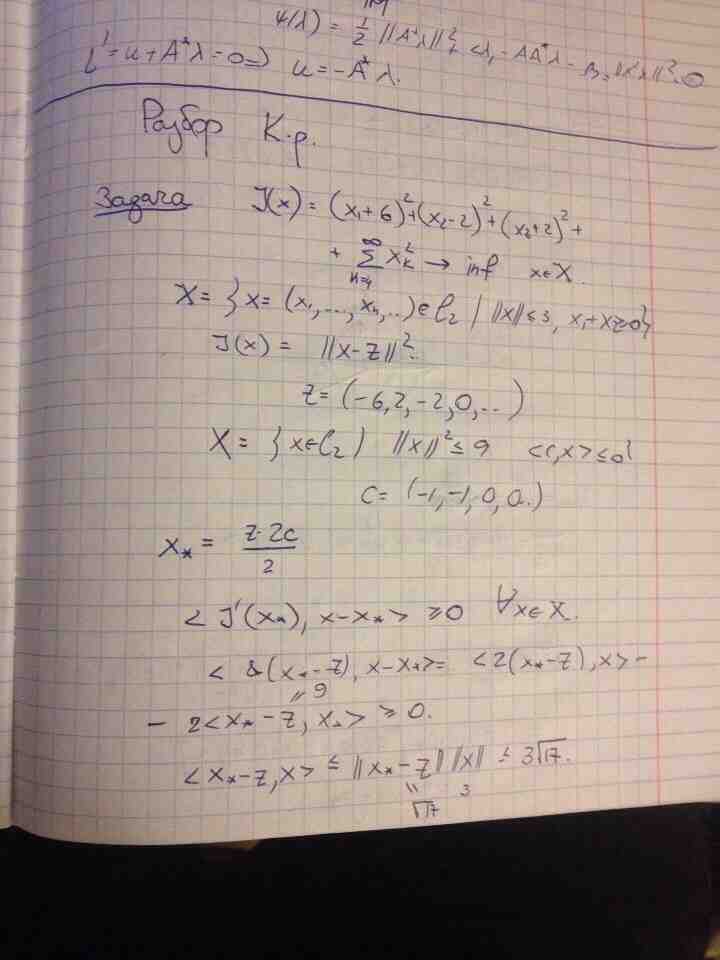 ψ(λ) = 1/2 ||A*λ||² + <λ, -AA*λ -
L' = u + A*λ = 0 => u = -A*λ.
Разбор К.р.
Задача J(x) = (x₁+6)² + (x₂-2)² + (x₂+2)² +
+ ∑ₙ₌₄^∞ xₖ² → inf x∈X.
X = {x = (x₁, ..., xₙ, ..) ∈ l₂ | ||x|| ≤ 3, x₁+x₂≥0}
J(x) = ||x-z||².
z = (-6, 2, -2, 0, ...)
X = {x∈l₂) ||x||² ≤ 9 <c,x> ≤ 0}
c = (-1, -1, 0, 0.)
x* = z·2c/2
<J'(x*), x-x*> ≥ 0 ∀x∈X.
< 2(x*-z), x-x*> = <2(x*-z), x> -
" 9
- 2<x*-z, x*> ≥ 0.
<x*-z, x> ≤ ||x*-z|| ||x|| ≤ 3√17.
" 3
√17